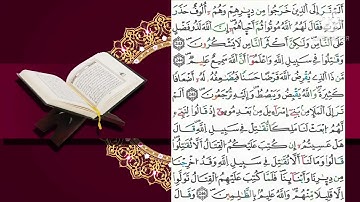 أَلَمْ تَرَ إِلَى ٱلَّذِينَ خَرَجُوا۟ مِن دِيَـٰرِهِمْ وَهُمْ أُلُوفٌ حَذَرَ
ٱلْمَوْتِ فَقَالَ لَهُمُ ٱللَّهُ مُوتُوا۟ ثُمَّ أَحْيَـٰهُمْ إِنَّ ٱللَّهَ لَذُو فَضْلٍ
عَلَى ٱلنَّاسِ وَلَـٰكِنَّ أَكْثَرَ ٱلنَّاسِ لَا يَشْكُرُونَ ٢٤٣
وَقَـٰتِلُوا۟ فِى سَبِيلِ ٱللَّهِ وَٱعْلَمُوٓا۟ أَنَّ ٱللَّهَ سَمِيعٌ عَلِيمٌ ٢٤٤
مَّن ذَا ٱلَّذِى يُقْرِضُ ٱللَّهَ قَرْضًا حَسَنًا فَيُضَـٰعِفَهُۥ لَهُۥٓ أَضْعَافًا
كَثِيرَةً وَٱللَّهُ يَقْبِضُ وَيَبْصُۜطُ وَإِلَيْهِ تُرْجَعُونَ ٢٤٥
أَلَمْ تَرَ إِلَى ٱلْمَلَإِ مِنۢ بَنِىٓ إِسْرَٰٓءِيلَ مِنۢ بَعْدِ مُوسَىٰٓ إِذْ قَالُوا۟ لِنَبِىٍّ
لَّهُمُ ٱبْعَثْ لَنَا مَلِكًا نُّقَـٰتِلْ فِى سَبِيلِ ٱللَّهِ قَالَ
هَلْ عَسَيْتُمْ إِن كُتِبَ عَلَيْكُمُ ٱلْقِتَالُ أَلَّا تُقَـٰتِلُوا۟
قَالُوا۟ وَمَا لَنَآ أَلَّا نُقَـٰتِلَ فِى سَبِيلِ ٱللَّهِ وَقَدْ أُخْرِجْنَا
مِن دِيَـٰرِنَا وَأَبْنَآئِنَا فَلَمَّا كُتِبَ عَلَيْهِمُ ٱلْقِتَالُ تَوَلَّوْا۟
إِلَّا قَلِيلًا مِّنْهُمْ وَٱللَّهُ عَلِيمٌۢ بِٱلظَّـٰلِمِينَ ٢٤٦